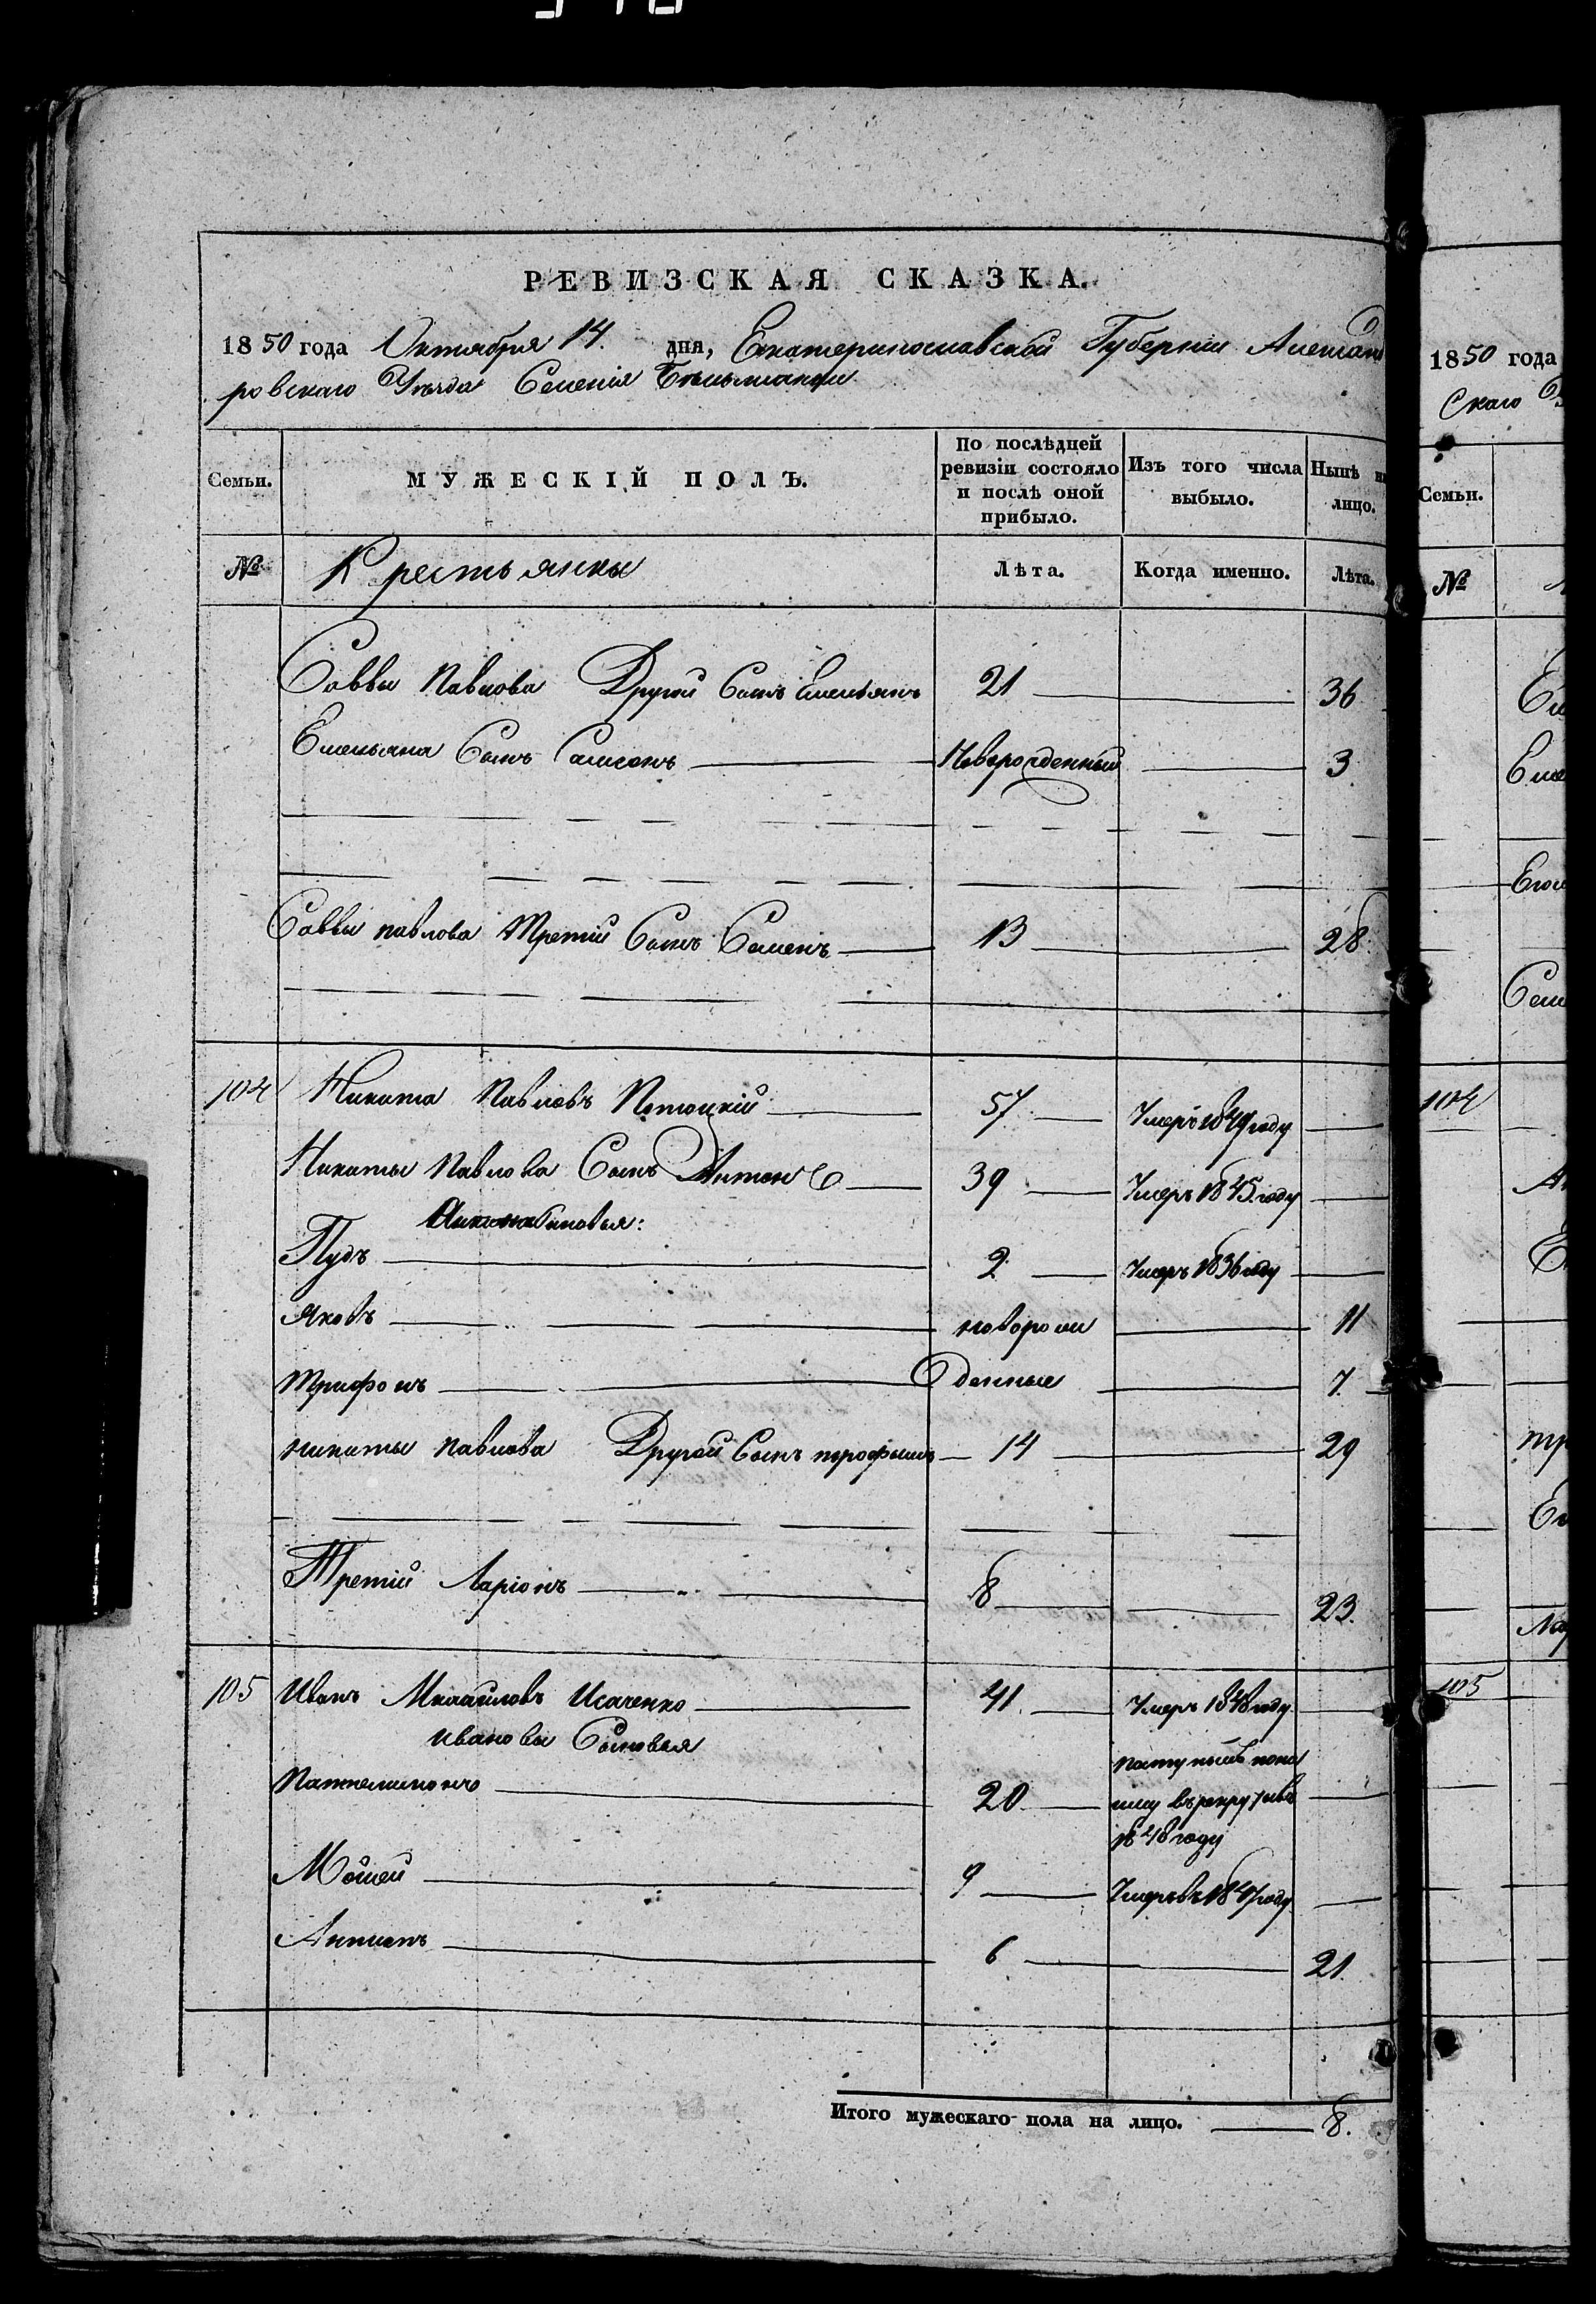 РЕВИЗСКАЯ СКАЗКА.
1850 года Октября 14. дня, Екатеринославской Губерніи Александ
ровскаго Уѣзда Селенія
Семьи. МУЖЕСКІЙ ПОЛЪ. По послѣдней ревизіи состояло и послѣ оной прибыло. Изъ того числа выбыло. Нынѣ на лицо.
№ Крестьянки Лѣта. Когда именно. Лѣта.
Саввы Павлова Другой Сынъ Емельянъ 21 36
Емельяна Сынъ Самсонъ Новорожденный 3
Саввы павлова Третій Сынъ Семенъ 13 28
104 Никита Павловъ Потоцкій 57 Умеръ 1849 году
Никиты Павлова Сынъ Антонъ 39 Умеръ 1845 году
Сыновья:
Пудъ 2 Умеръ 1836 году
Яковъ новорож 11
Трифонъ денные 7
никиты павлова Другой Сынъ 14 29
Третій Ларіонъ 8 23.
105 Иванъ Михайловъ Исаченко 41. Умеръ 1848 году
Ивановы Сыновья
Пантелимонъ 20 поступилъ
въ рекруты въ
1848 году
Мосей 9 Умеръ въ 1847 году
Антонъ 6 21.
Итого мужескаго пола на лицо. 8.
1850 года
Скаго
Семьи.
№
104
105